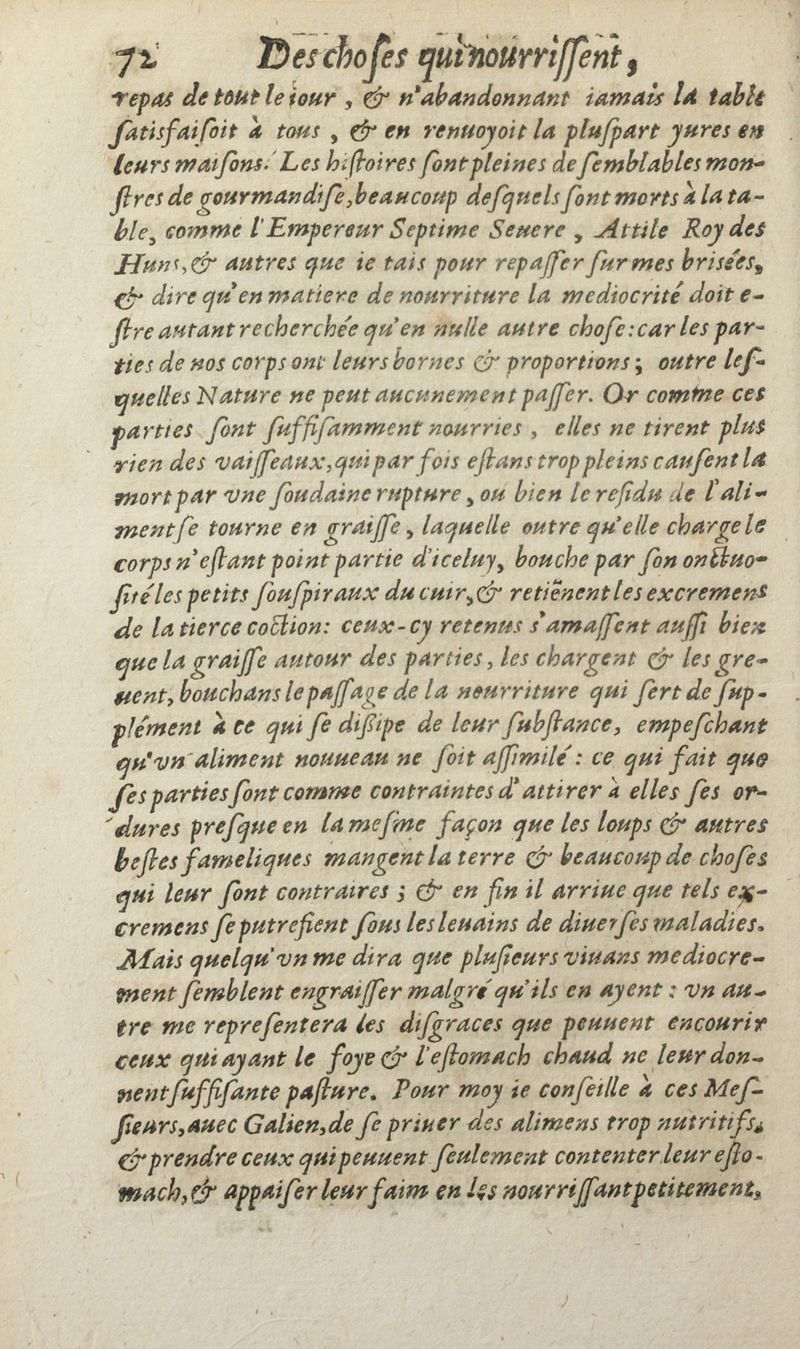 72 Des choses qui nourrissent,
repas de tout le iour, & n'abandonnant iamais la table
satisfaisoit à tous, & en renuoyoit la pluspart yures en
leurs maisons. Les histoires sont pleines de semblables mon-
stres de gourmandise, beaucoup desquels sont morts à la ta-
ble, comme l'Empereur Septime Seuere, Attile Roy des
Huns, & autres que ie tais pour repasser sur mes brisées,
& dire qu'en matiere de nourriture la mediocrité doit e-
stre autant recherchée qu'en nulle autre chose: car les par-
ties de nos corps ont leurs bornes & proportions; outre les-
quelles Nature ne peut aucunement passer. Or comme ces
parties sont suffisamment nourries, elles ne tirent plus
rien des vaisseaux, qui par fois estans trop pleins causent la
mort par vne soudaine rupture, ou bien le residu de l'ali-
ment se tourne en graisse, laquelle outre qu'elle charge le
corps n'estant point partie d'iceluy, bouche par son onctuo-
sité les petits souspiraux du cuir, & retiēnent les excremens
de la tierce coction: ceux-cy retenus s'amassent aussi bien
que la graisse autour des parties, les chargent & les gre-
uent, bouchans le passage de la nourriture qui sert de sup-
plément à ce qui se dissipe de leur substance, empeschant
qu'vn aliment nouueau ne soit assimilé: ce qui fait que
ses parties sont comme contraintes d'attirer à elles ses or-
dures presque en la mesme façon que les loups & autres
bestes fameliques mangent la terre & beaucoup de choses
qui leur sont contraires; & en fin il arriue que tels ex-
cremens se putrefient sous les leuains de diuerses maladies.
Mais quelqu'vn me dira que plusieurs viuans mediocre-
ment semblent engraisser malgré qu'ils en ayent: vn au-
tre me representera les disgraces que peuuent encourir
ceux qui ayant le foye & l'estomach chaud ne leur don-
nent suffisante pasture. Pour moy ie conseille à ces Mes-
sieurs, auec Galien, de se priuer des alimens trop nutritifs,
& prendre ceux qui peuuent seulement contenter leur esto-
mach, & appaiser leur faim en les nourrissant petitement,